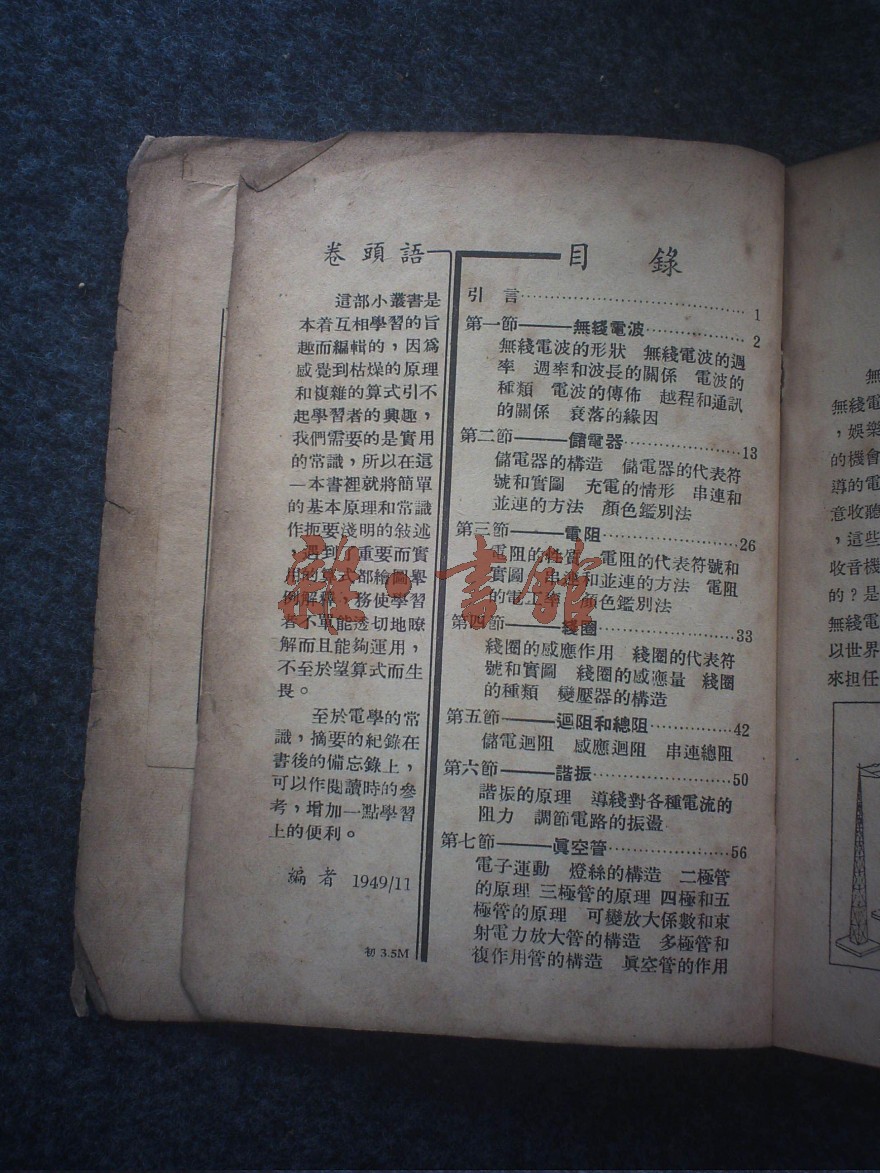 卷頭語
這部小叢書是
本着互相學習的旨
趣而編輯的，因爲
感覺到枯燥的原理
和複雜的算式引不
起學習者的興趣，
我們需要的是實用
的常識，所以在這
一本書裡就將簡單
的基本原理和常識
作扼要淺明的敍述
，遇到了重要而實
用的算式都繪圖舉
例解釋，務使學習
者不單能透切地瞭
解而且能夠運用，
不至於望算式而生
畏。
至於電學的常
識，摘要的紀錄在
書後的備忘錄上，
可以作閱讀時的參
考，增加一點學習
上的便利。
編者 1949/11
初 3.5M
目 錄
引 言……………………………1
第一節——無綫電波……………2
無綫電波的形狀 無綫電波的週
率 週率和波長的關係 電波的
種類 電波的傳佈 越程和通訊
的關係 衰落的緣因
第二節——儲電器………………13
儲電器的構造 儲電器的代表符
號和實圖 充電的情形 串連和
並連的方法 顏色鑑別法
第三節——電阻…………………26
電阻的性質 電阻的代表符號和
實圖 串連和並連的方法 電阻
的電工率 顏色鑑別法
第四節——綫圈…………………33
綫圈的感應作用 綫圈的代表符
號和實圖 綫圈的感應量 綫圈
的種類 變壓器的構造
第五節——迴阻和總阻…………42
儲電迴阻 感應迴阻 串連總阻
第六節——諧振…………………50
諧振的原理 導綫對各種電流的
阻力 調節電路的振盪
第七節——眞空管………………56
電子運動 燈絲的構造 二極管
的原理 三極管的原理 四極和五
極管的原理 可變放大係數和束
射電力放大管的構造 多極管和
複作用管的構造 眞空管的作用
無
無綫電
，娛樂
的機會
導的電
意收聽
，這些
收音機
的？是
無綫電
以世界
來担任
雜·書館